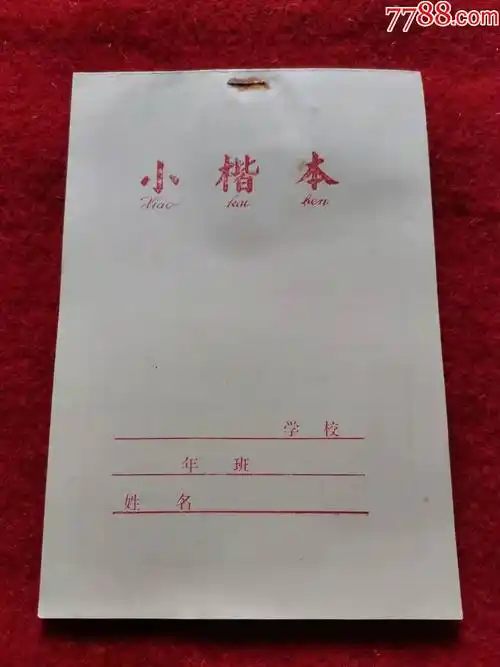 7788.com
小楷本
Xiao kai ben
学校
年班
姓名